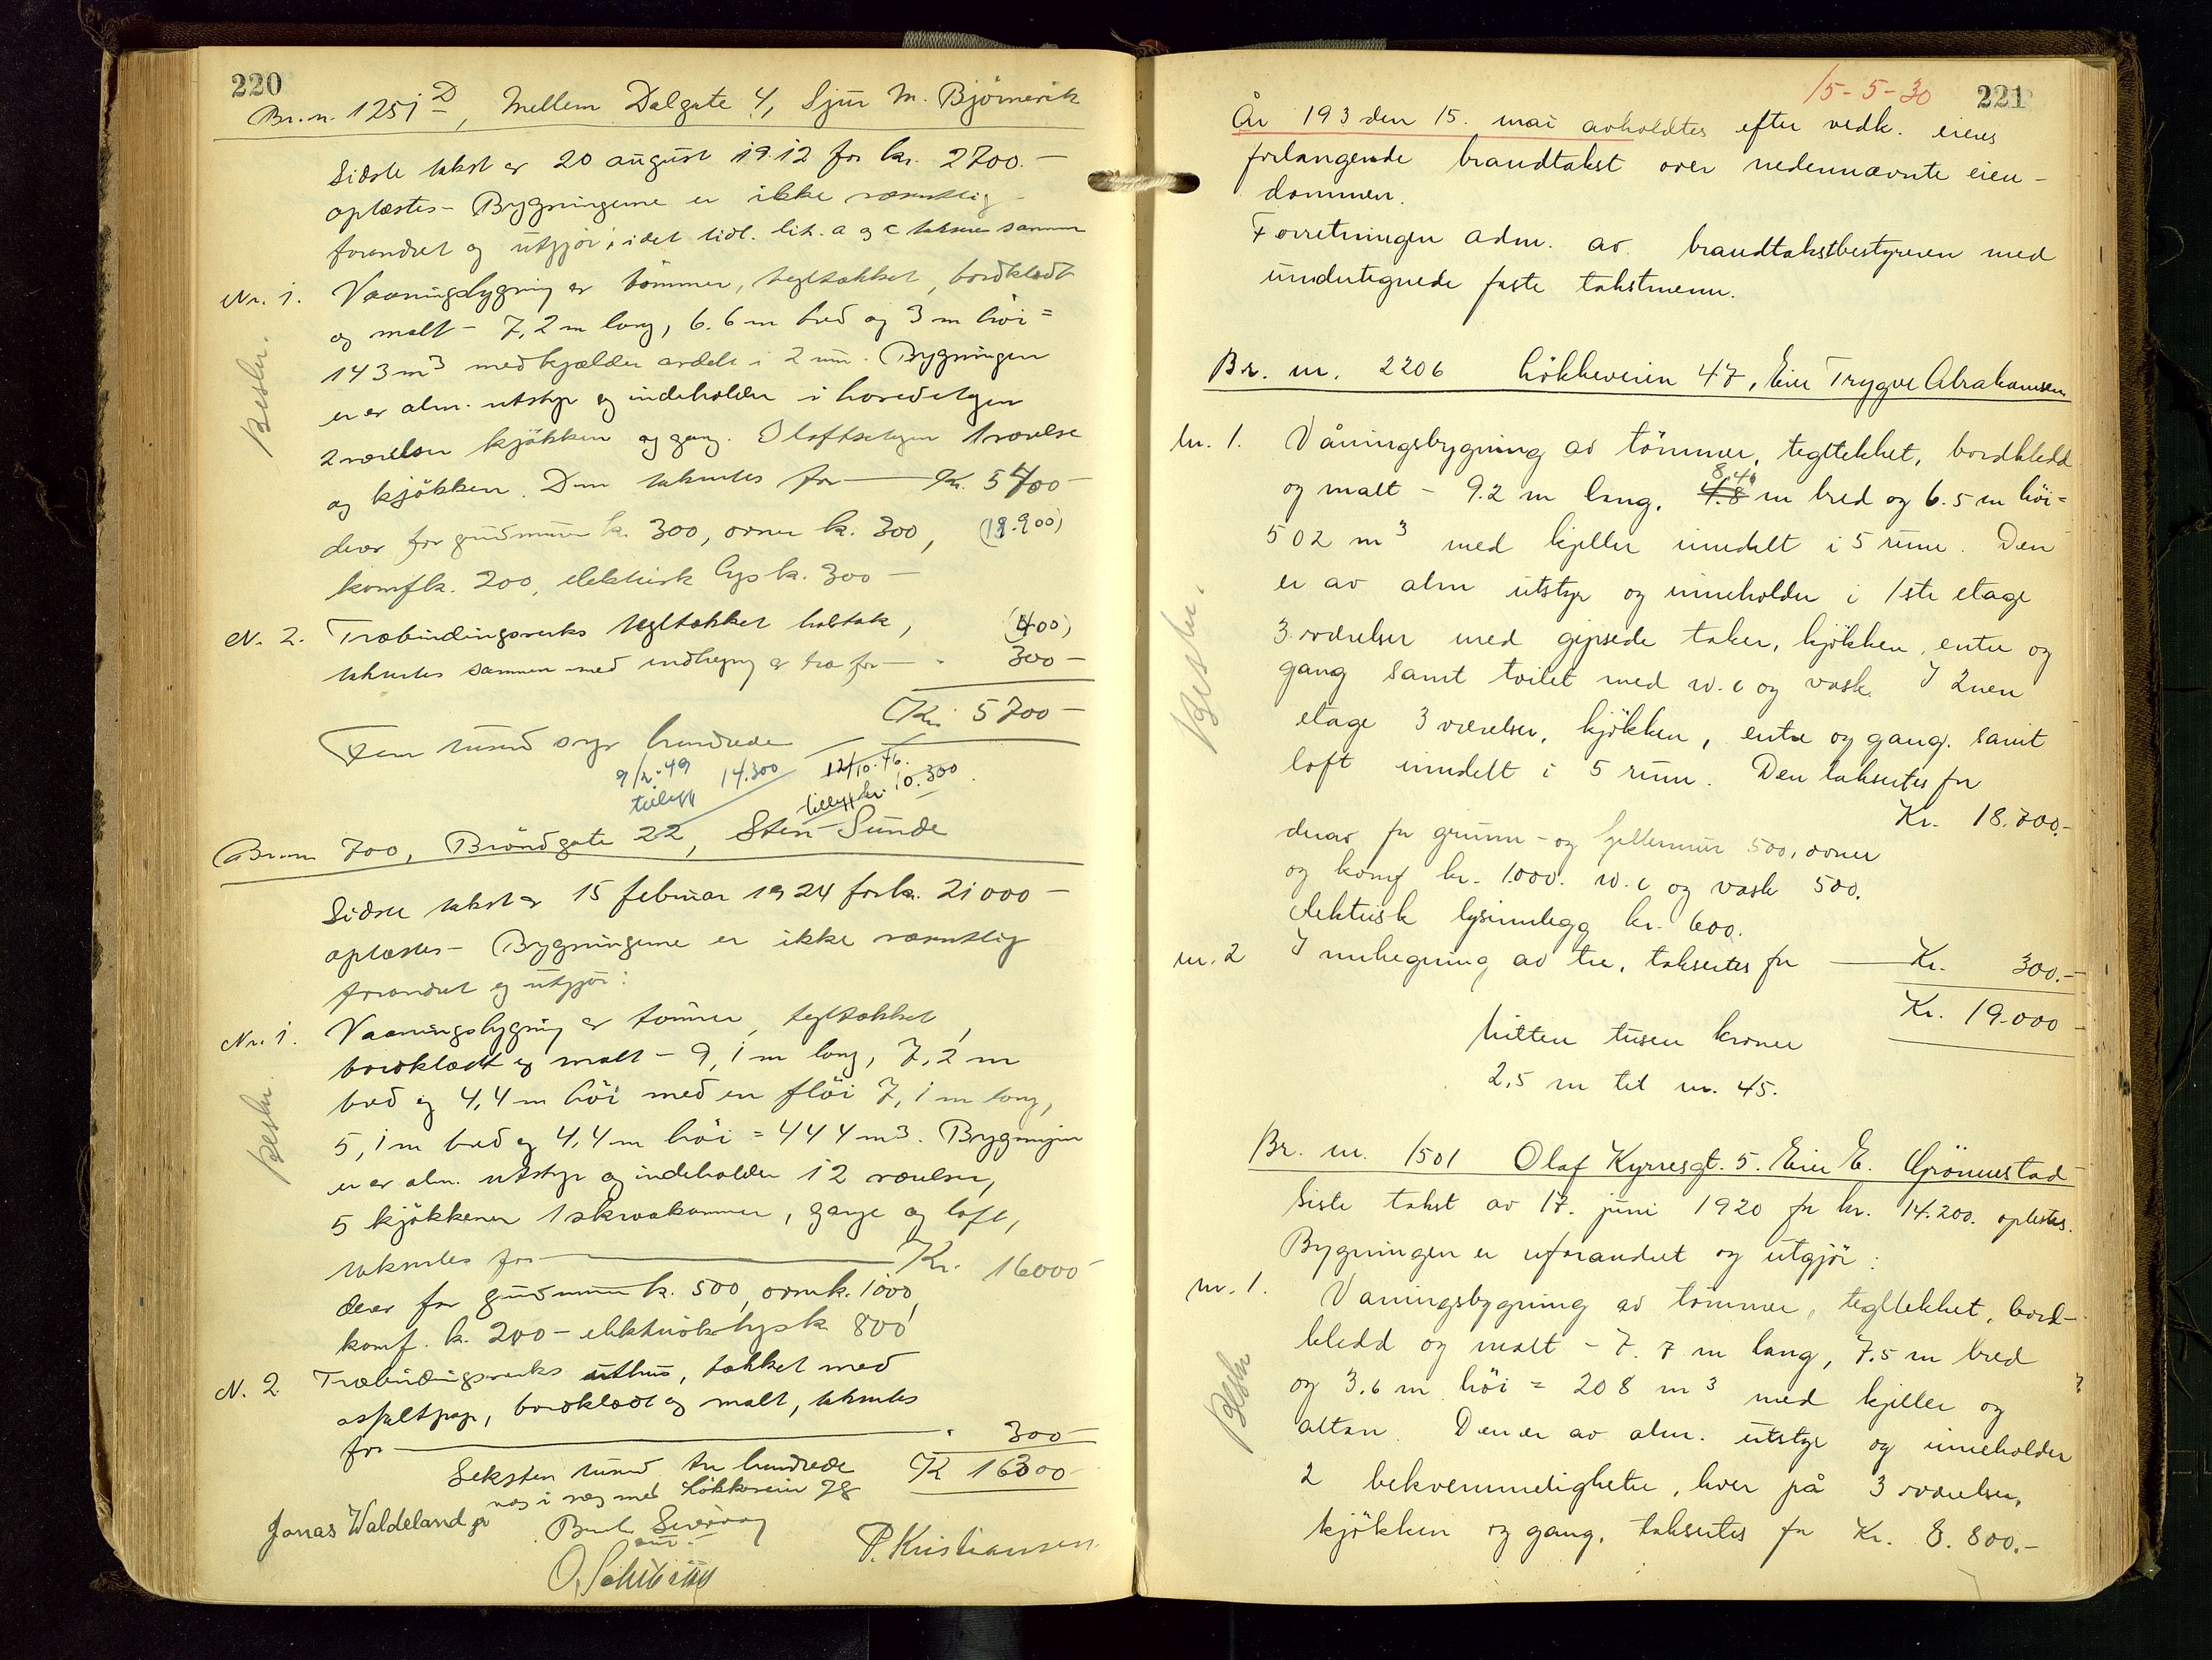 220
Br.n. 1251 D, Mellem Dalgate 4, Sjur M. Björnevik
Sidste takst er 20 august 1912 for kr. 2700.-
oplæstes - Bygningerne er ikke væsentlig
forandret og utgjör, idet tidl. lit. a og c takseres sammen
Nr. 1. Vaaningsbygning av tömmer, tegltækket, bordklædt
og malt - 7,2 m lang, 6.6 m bred og 3 m höi =
143 m3 med kjælder avdelt i 2 rum. Bygningen
Beskr.
er av alm. utstyr og indeholder i hovedetagen
2 værelser kjökken og gang. I loftsetagen 1 værelse
og kjökken. Den takseres for — Kr. 5400 -
derav for grundmur kr. 300, ovner kr. 300, (19.900)
komf kr. 200, elektrisk lys kr. 300 -
N. 2. Træbindingsverks tegltækket halvtak, (400)
takseres sammen med indhegning av træ for — " 300 -
Kr. 5700 -
Fem tusind syv hundrede
9/2-49 14.300
tillegg
12/10.46.
tillegg kr. 10.300
Br.nr 700, Bröndgate 22, Sten Sunde
Sidste takst er 15 februar 1924 for kr. 21000 -
oplæstes - Bygningerne er ikke væsentlig
forandret og utgjör:
Nr. 1. Vaaningsbygning av tömmer, tegltækket,
bordklædt og malt - 9,1 m lang, 7,2 m
bred og 4,4 m höi med en flöi 7,1 m lang,
5,1 m bred og 4,4 m höi = 444 m3. Bygningen
Beskr.
er av alm. utstyr og indeholder 12 værelser,
5 kjökkener 1 skraakammer, gange og loft,
takseres for — Kr. 16000 -
derav for grundmur kr. 500, ovner kr. 1000,
komf. kr. 200 - elektrisk lys kr. 800,
N. 2. Træbindingsverks uthus, tækket med
asfaltpap, bordklædt og malt, takseres
for — " 300 -
Seksten tusind tre hundrede K 16300 -
væg i væg med Lökkeveien 78
Jonas Waldeland jr
P. Kristiansen
15-5-30 221
År 193 den 15. mai avholdtes efter vedk. eieres
forlangende brandtakst over nedennævnte eien-
dommer.
Forretningen adm. av brandtakstbestyreren med
undertegnede faste takstmenn.
Br. nr. 2206 Lökkeveien 47, Eier Trygve Abrahamsen
nr. 1. Våningsbygning av tömmer, tegltekket, bordkledd
8,40
og malt - 9.2 m lang, 4.8 m bred og 6.5 m höi =
502 m3 med kjeller inndelt i 5 rum. Den
er av alm utstyr og inneholder i 1ste etage
Beskr.
3 værelser med gipsede taker, kjökken, entre og
gang samt toilet med w.c og vask. I 2nen
etage 3 værelser, kjökken, entre og gang. samt
loft inndelt i 5 rum. Den takseres for
Kr. 18.700.-
derav for grunn- og kjellermur 500, ovner
og komf kr. 1000. w.c og vask 500.
elektrisk lysinnlegg kr. 600.
nr. 2 Innhegning av tre, takseres for — Kr. 300.-
Kr. 19.000 -
Nitten tusen kroner
2,5 m til nr. 45.
Br. nr. 1501 Olaf Kyrresgt. 5. Eier E. Grönnestad
Siste takst av 17. juni 1920 for kr. 14.200. oplestes.
Bygningen er uforandret og utgjör:
nr. 1. Våningsbygning av tömmer, tegltekket, bord-
kledd og malt - 7.7 m lang, 7.5 m bred
og 3.6 m höi = 208 m3 med kjeller og
Beskr
altan. Den er av alm. utstyr og inneholder
2 bekvemmeligheter, hver på 3 værelser,
kjökken og gang, takseres for Kr. 8.800.-